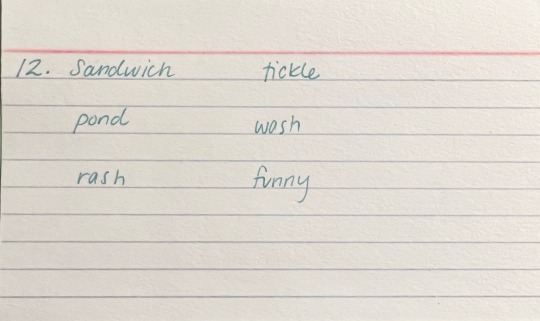 12. Sandwich tickle
pond wash
rash funny